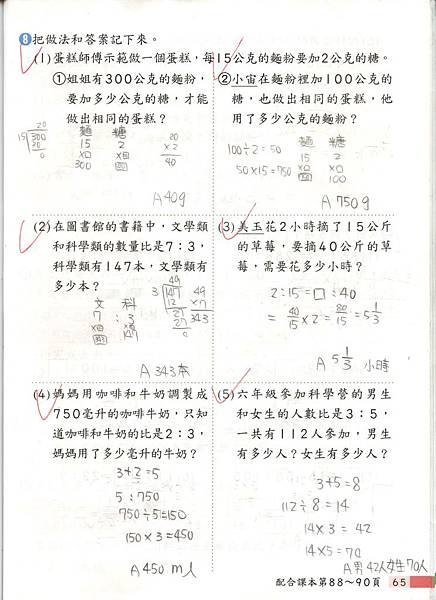 8 把做法和答案記下來。
(1)蛋糕師傅示範做一個蛋糕，每15公克的麵粉要加2公克的糖。
①姐姐有300公克的麵粉，
要加多少公克的糖，才能
做出相同的蛋糕？
20
15 300
30
0
麵 糖
15 2
×□ ×□
300 □
20
×2
40
A 40g
②小宙在麵粉裡加100公克的
糖，也做出相同的蛋糕，他
用了多少公克的麵粉？
100÷2=50
50×15=750
麵 糖
15 2
×□ ×□
□ 100
A 750g
(2)在圖書館的書籍中，文學類
和科學類的數量比是7：3，
科學類有147本，文學類有
多少本？
文 科
7 : 3
×□ ×□
□ 147
49
3 147
12
27
27
0
49
×7
343
A 343本
(3)美玉花2小時摘了15公斤
的草莓，要摘40公斤的草
莓，需要花多少小時？
2:15=□:40
=40/15×2=80/15=5 1/3
A 5 1/3 小時
(4)媽媽用咖啡和牛奶調製成
750毫升的咖啡牛奶，只知
道咖啡和牛奶的比是2：3，
媽媽用了多少毫升的牛奶？
3+2=5
5:750
750÷5=150
150×3=450
A 450 ml
(5)六年級參加科學營的男生
和女生的人數比是3：5，
一共有112人參加，男生
有多少人？女生有多少人？
3+5=8
112÷8=14
14×3=42
14×5=70
A男42人女生70人
配合課本第88～90頁 65